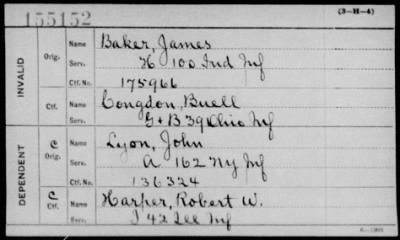 155152
(3-H-4)
INVALID
Orig.
Name Baker, James
Serv. H 100 Ind Inf
Ctf. No. 175966
Ctf.
Name Congdon, Buell
Serv. G + B 39 Ohio Inf
DEPENDENT
C Orig.
Name Lyon, John
Serv. A 162 NY Inf
Ctf. No. 136324
C Ctf.
Name Harper, Robert W.
Serv. I 42 Ill Inf